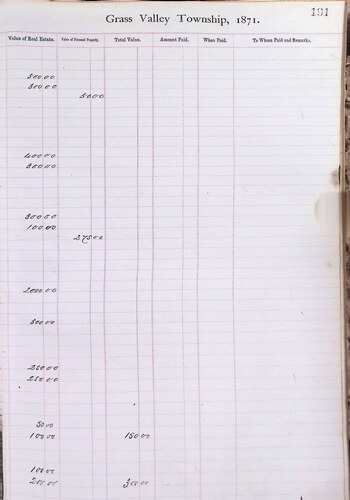 191
Grass Valley Township, 1871.
Value of Real Estate. Value of Personal Property. Total Value. Amount Paid. When Paid. To Whom Paid and Remarks.
500 00
50 00
400 00
300 00
100 00
275 00
2000 00
500 00
250 00
250 00
50 00
100 00 150 00
100 00
200 00 300 00